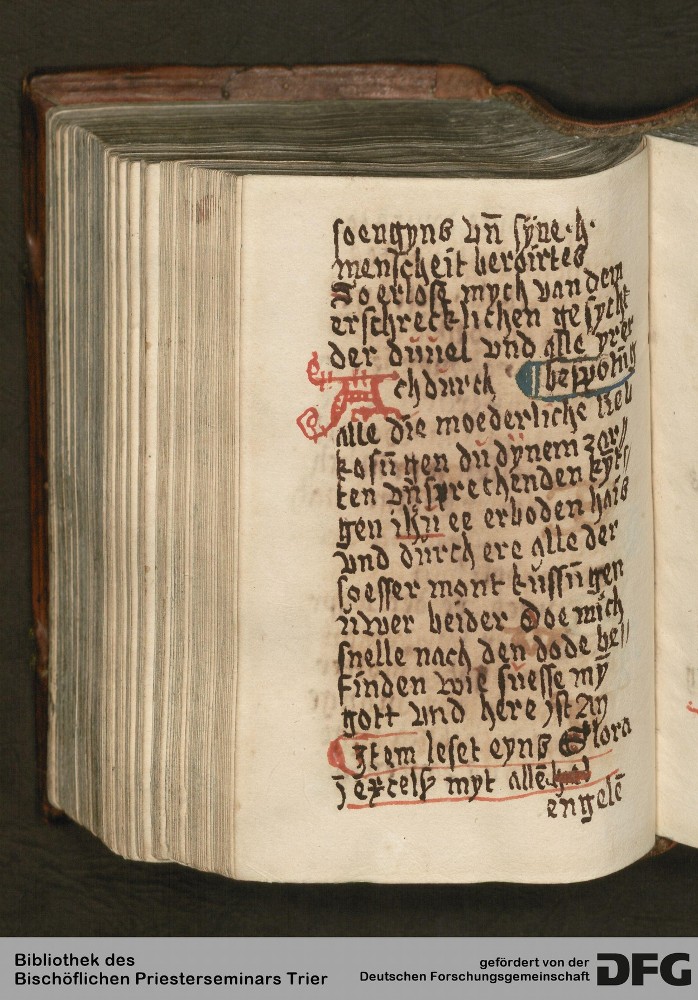 soengyns vn̄ syne·h·
menscheit beroirtes
So erlose mych van dem
erschrecklichen gesycht
der duuel vnd alle yrer
Ach durch
alle die moederliche lieb
kosūgen du dynem zar//
ten vn̄ sprechenden
gen ihū ee erboden hais
vnd durch ere alle der
soesser mont kussūgen
uwer beider Doe mich
snelle nach den dode be//
finden wie suesse mȳ
gott vnd here ist Am
Item leset eyns Glora
J excels myt allē
engelē
Bibliothek des
Bischöflichen Priesterseminars Trier
gefördert von der
Deutschen Forschungsgemeinschaft
DFG